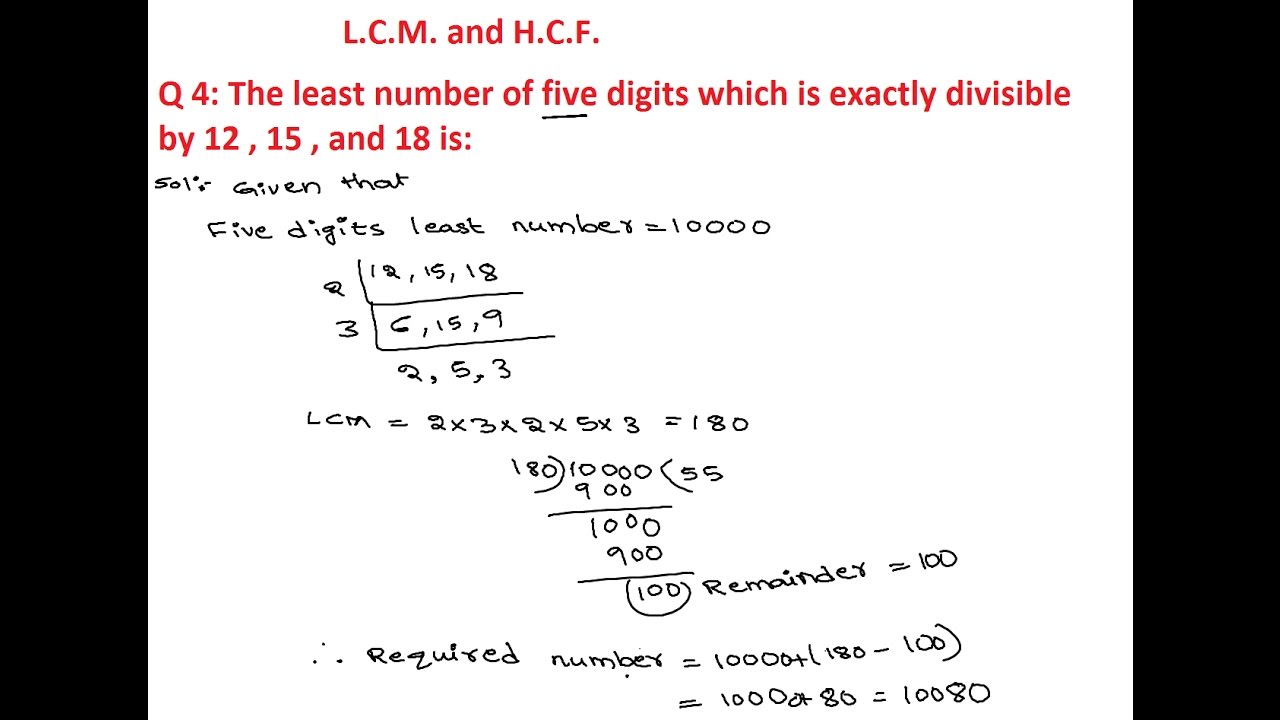 L.C.M. and H.C.F.
Q 4: The least number of five digits which is exactly divisible
by 12 , 15 , and 18 is:
Sol:- Given that
Five digits least number = 10000
2 | 12, 15, 18
3 | 6, 15, 9
2, 5, 3
LCM = 2×3×2×5×3 = 180
180)10000(55
900
1000
900
(100) Remainder = 100
∴ Required number = 10000+(180-100)
= 10000+80 = 10080